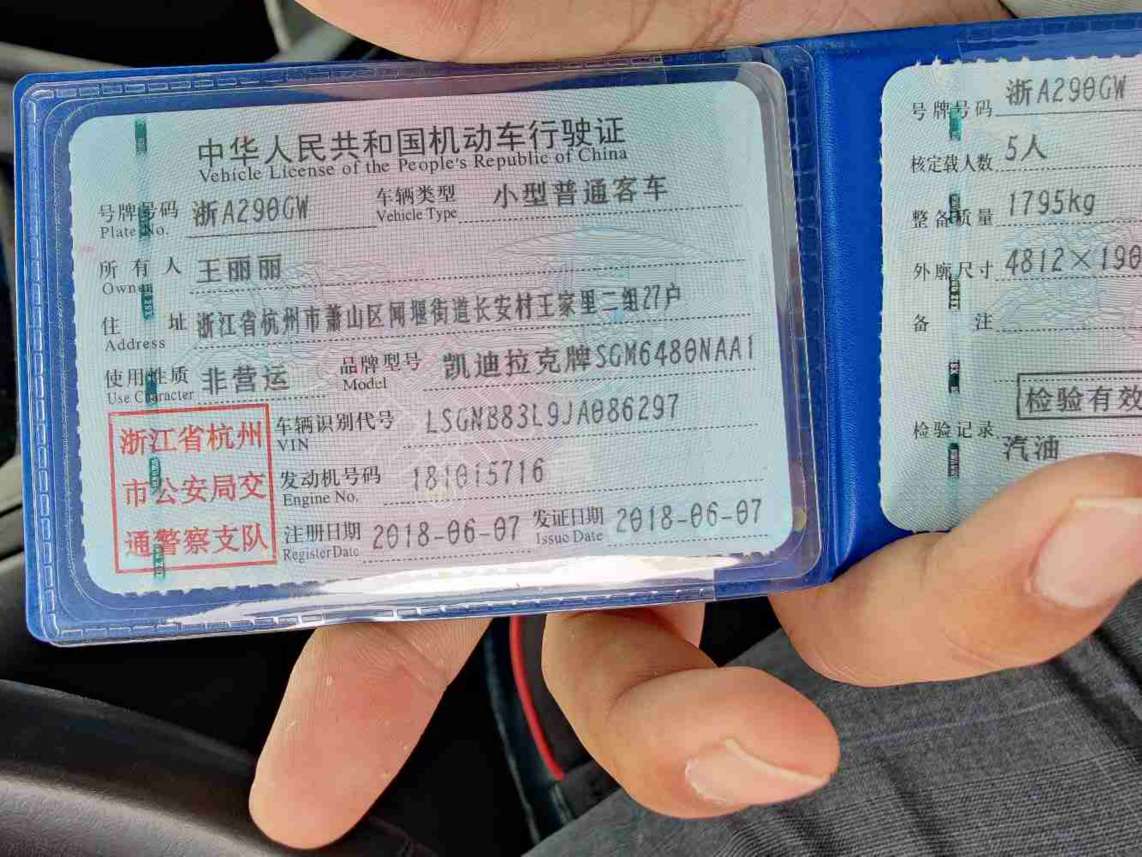 中华人民共和国机动车行驶证
Vehicle License of the People's Republic of China
号牌号码 浙A290GW 车辆类型 小型普通客车
Plate No. Vehicle Type
所有人 王丽丽
Owner
住址 浙江省杭州市萧山区闻堰街道长安村王家里二组27户
Address
使用性质 非营运 品牌型号 凯迪拉克牌SGM6480NAA1
Use Character Model
浙江省杭州
市公安局交
通警察支队
车辆识别代号 LSGNB83L9JA086297
VIN
发动机号码 181015716
Engine No.
注册日期 2018-06-07 发证日期 2018-06-07
Register Date Issue Date
号牌号码 浙A290GW
核定载人数 5人
整备质量 1795kg
外廓尺寸 4812×190
备注
检验有效
检验记录
汽油